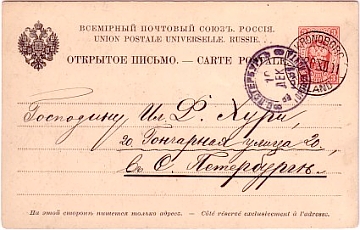 ВСЕМІРНЫЙ ПОЧТОВЫЙ СОЮЗЪ. РОССІЯ.
UNION POSTALE UNIVERSELLE. RUSSIE.
ОТКРЫТОЕ ПИСЬМО. — CARTE POSTALE
KRONOBORG
С.ПЕТЕРБУРГЪ
10
ДЕК
Господину Ил. Ф. Хури,
20. Гончарная улица 20.,
въ С. Петербургѣ.
На этой сторонѣ пишется только адресъ. — Côté réservé exclusivement à l'adresse.